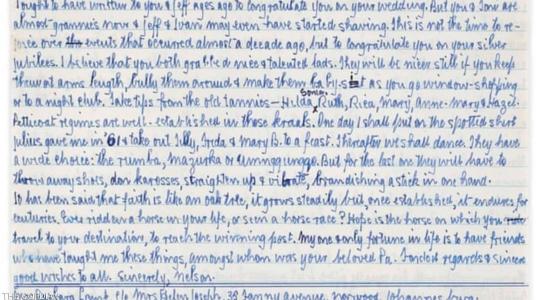 I ought to have written to you & Jeff ages ago to congratulate you on your wedding. But you & are
almost grannies now & Jeff & Ivan may even have started shaving. This is not the time to re-
over events that occurred almost a decade ago, but to congratulate you on your silver
jubilees. I believe that you both grabbed nice & talented lads. They will be nicer still if you keep
them at arms length, bully them around & make them baby-sit as you go window-shopping
or to a night club. Take tips from the old tannies – Hilda, Sonia, Ruth, Rica, Mary, Anne-Mary & Hazel.
Petticoat regimes are well established in those kraals. One day I shall put on the spotted shirt
Julius gave me in '61 & take out Tilly, Freda & Mary B. to a feast. Thereafter we shall dance. They have
a wide choice: the rumba, mazurka or umngqungqo. But for the last one they will have to
throw away shoes, don karosses, straighten up & vibrate, brandishing a stick in one hand.
It has been said that faith is like an oak tree, it grows steadily but, once established, it endures for
centuries. Ever ridden a horse in your life, or seen a horse race? Hope is the horse on which you
travel to your destination, to reach the winning post. My one & only fortune in life is to have friends
who have taught me these things, amongst whom was your beloved Pa. Fondest regards & sincere
good wishes to all. Sincerely, Nelson.
c/o Mrs Helen Joseph, 35 Fanny Avenue, Norwood, Johannesburg